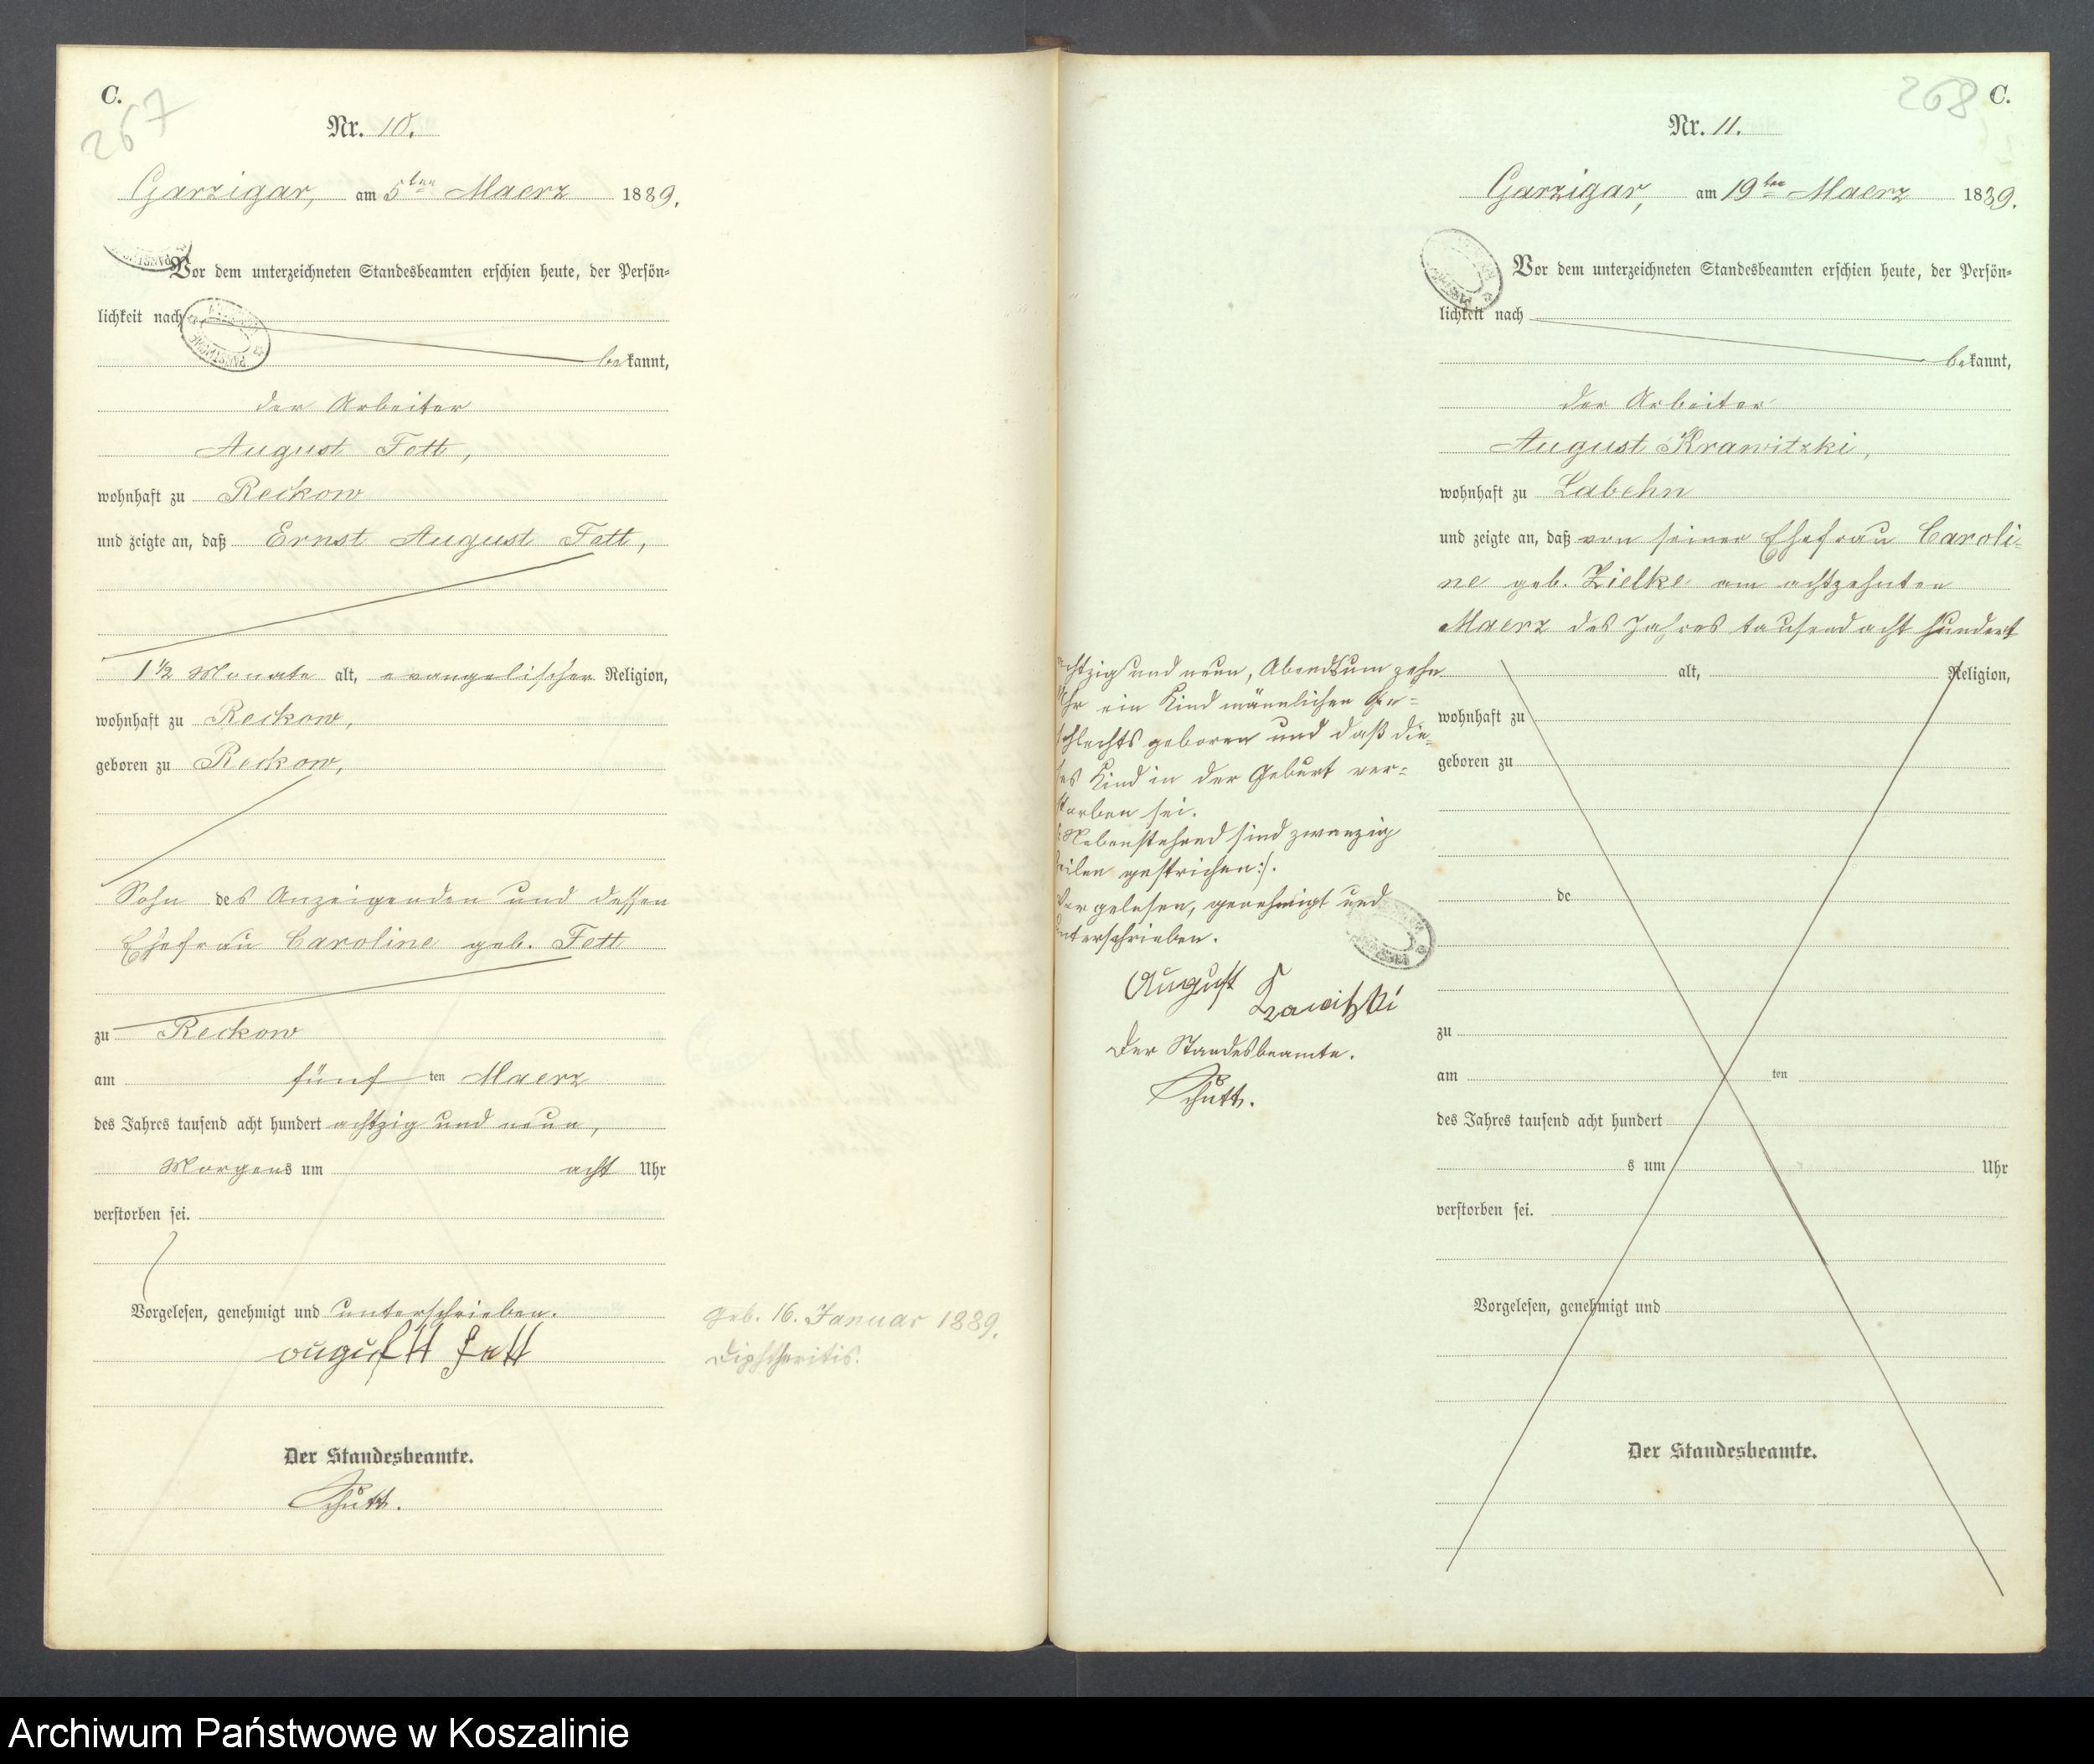 C.
267
Nr. 10.
Garzigar, am 5ten Maerz 1889.
Vor dem unterzeichneten Standesbeamten erschien heute, der Persön-
lichkeit nach
bekannt,
der Arbeiter
August Fett,
wohnhaft zu Reckow
und zeigte an, daß Ernst August Fett,
1 1/2 Monate alt, evangelischer Religion,
wohnhaft zu Reckow,
geboren zu Reckow,
Sohn des Anzeigenden und dessen
Ehefrau Caroline geb. Fett
zu Reckow
am fünf ten Maerz
des Jahres tausend acht hundert achtzig und neun,
Morgens um acht Uhr
verstorben sei.
Vorgelesen, genehmigt und unterschrieben.
august Fett
Der Standesbeamte.
Schütt.
geb. 16. Januar 1889.
Diphtheritis.
268
C.
Nr. 11.
Garzigar, am 19ten Maerz 1889.
Vor dem unterzeichneten Standesbeamten erschien heute, der Persön-
lichkeit nach
bekannt,
der Arbeiter
August Krawitzki,
wohnhaft zu Labehn
und zeigte an, daß von seiner Ehefrau Caroli-
ne geb. Zielke am achtzehnten
Maerz des Jahres tausend acht hundert
achtzig und neun, Abends um zehn
Uhr ein Kind männlichen Ge-
schlechts geboren und daß die-
ses Kind in der Geburt ver-
storben sei.
/: Nebenstehend sind zwanzig
Zeilen gestrichen :/.
Vorgelesen, genehmigt und
unterschrieben.
August Krawitzki
Der Standesbeamte.
Schütt.
alt, Religion,
wohnhaft zu
geboren zu
de
zu
am ten
des Jahres tausend acht hundert
s um Uhr
verstorben sei.
Vorgelesen, genehmigt und
Der Standesbeamte.
Archiwum Państwowe w Koszalinie